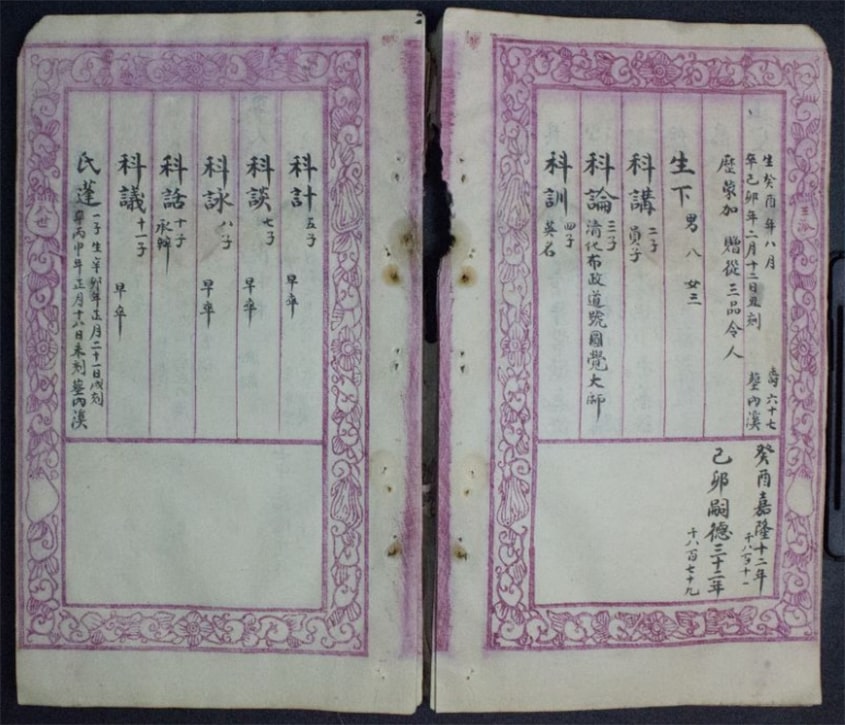 生癸酉年八月
卒己卯年二月十二日丑刻 壽六十七 塟內溪
歷蒙加 贈從三品令人
生下 男八 女三
科講 二子 員子
科論 三子 清化布政道號圓覺大師
科訓 四子 英名
癸酉嘉隆十二年
己卯嗣德三十二年
十八百七十九
科計 五子 早卒
科談 七子 早卒
科詠 八子 早卒
科話 十子 承幹
科議 十一子 早卒
氏蓬 一子 生辛卯年正月二十一日戌刻
卒丙申年正月十八日未刻 塟內溪
八世